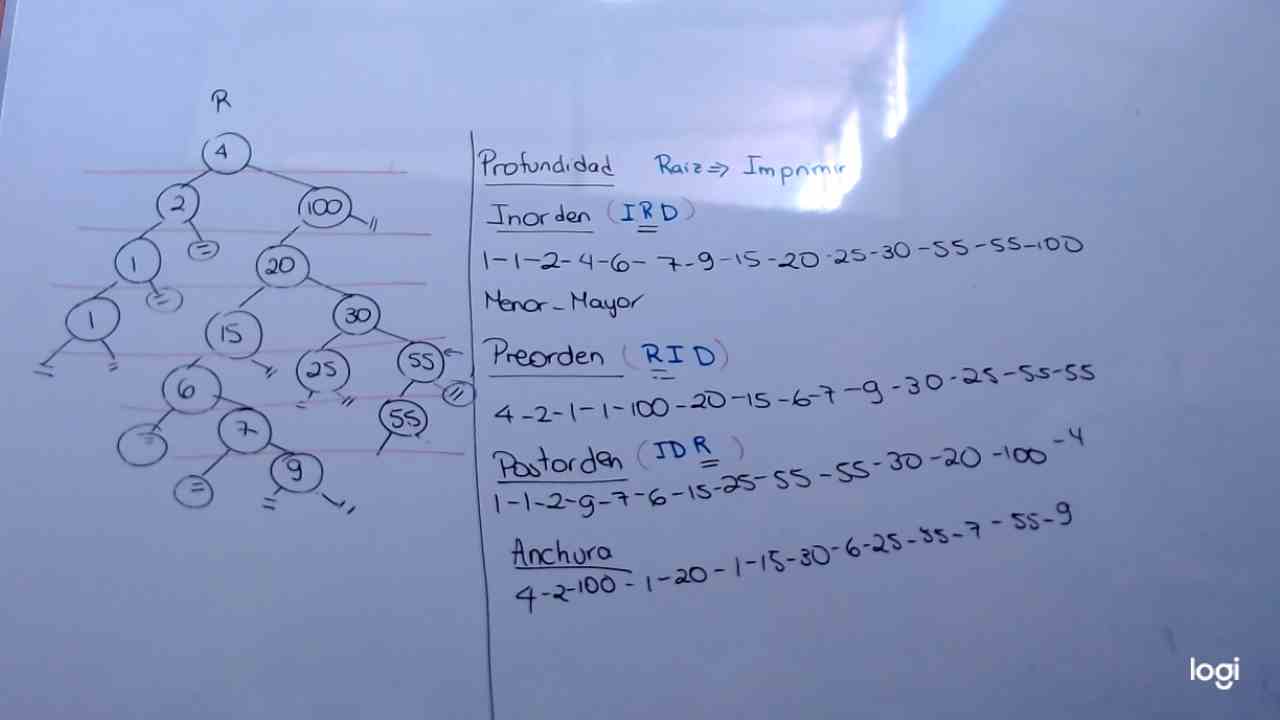 R
4
2 100
1 20
1 15 30
6 25 55
7 55
9
Profundidad Raiz => Imprimir
Inorden (IRD)
1-1-2-4-6-7-9-15-20-25-30-55-55-100
Menor-Mayor
Preorden (RID)
4-2-1-1-100-20-15-6-7-9-30-25-55-55
Postorden (IDR)
1-1-2-9-7-6-15-25-55-55-30-20-100-4
Anchura
4-2-100-1-20-1-15-30-6-25-55-7-55-9
logi